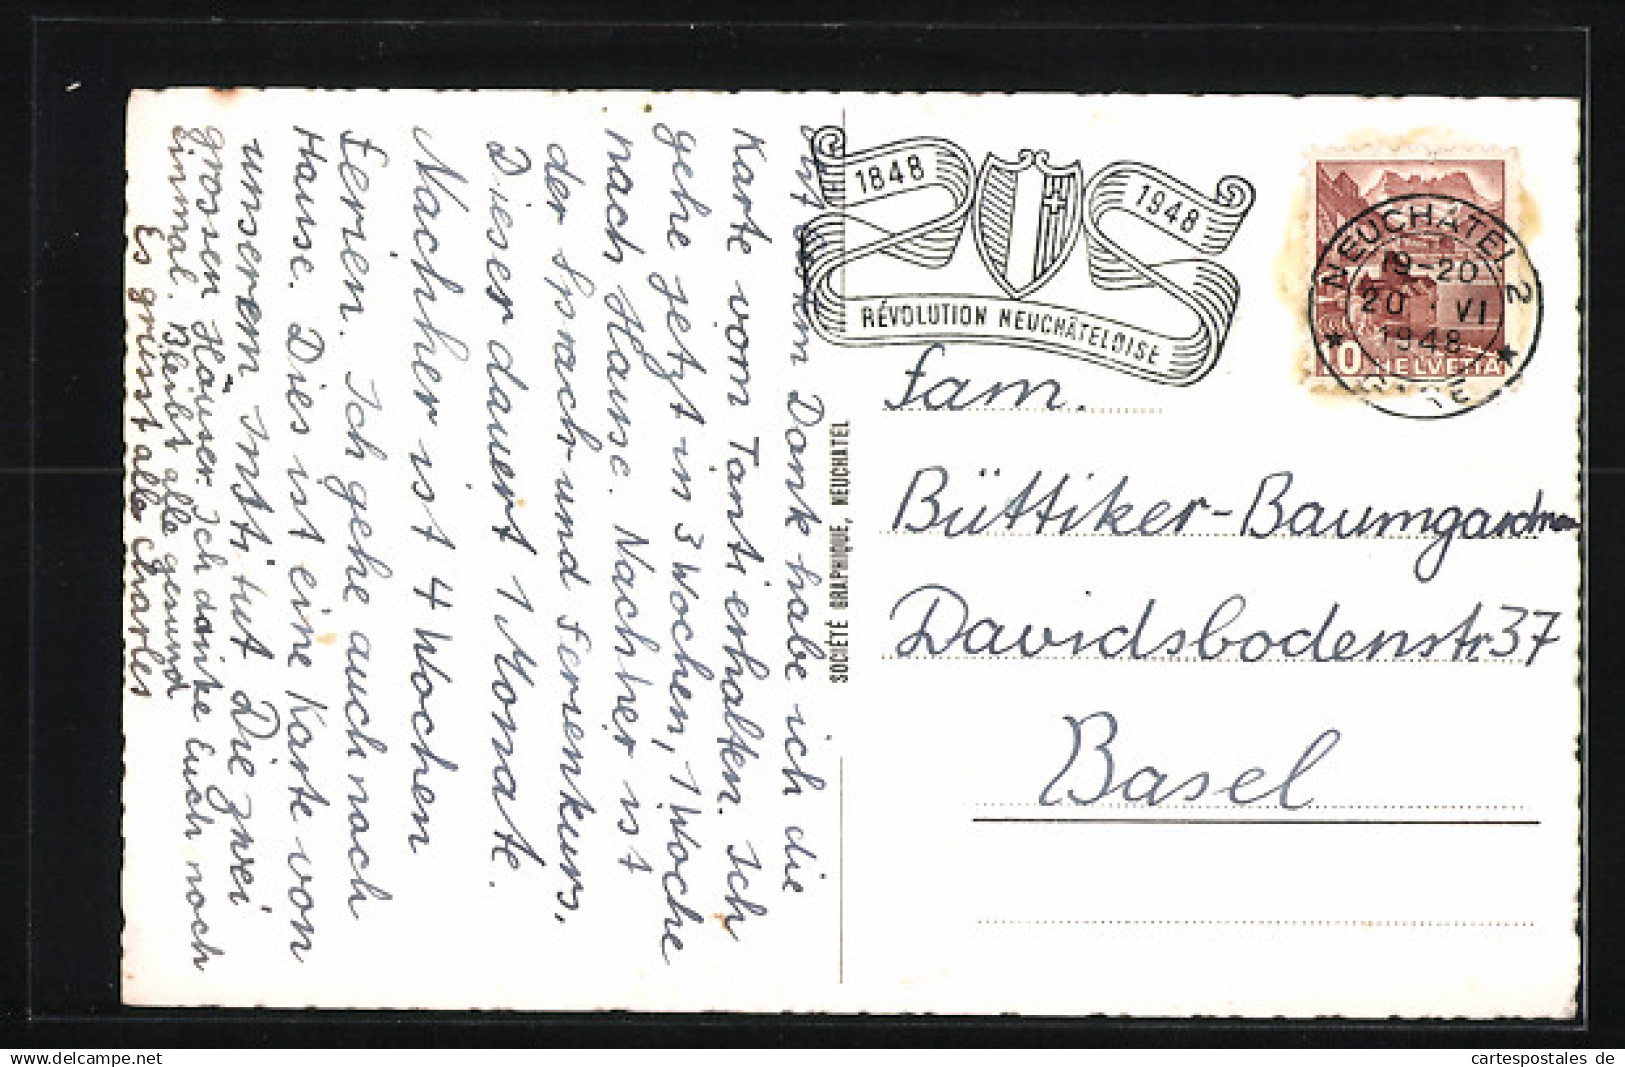 Mit bestem Dank habe ich die
Karte vom Tanti erhalten. Ich
gehe jetzt in 3 Wochen, 1 Woche
nach Hause. Nachher ist
der Sprach- und Ferienkurs.
Dieser dauert 1 Monate.
Nachher ist 4 Wochen
Ferien. Ich gehe auch nach
Hause. Dies ist eine Karte von
unserem Institut Die zwei
grossen Häuser. Ich danke Euch noch
einmal. Bleibt alle gesund
Es grüsst alle Charles
SOCIÉTÉ GRAPHIQUE, NEUCHATEL
1848
1948
RÉVOLUTION NEUCHÂTELOISE
NEUCHÂTEL 2
19-20
20 VI
1948
HELVETIA
Fam.
Büttiker-Baumgardner
Davidsbodenstr. 37
Basel
cartespostales.de
cartespostales de